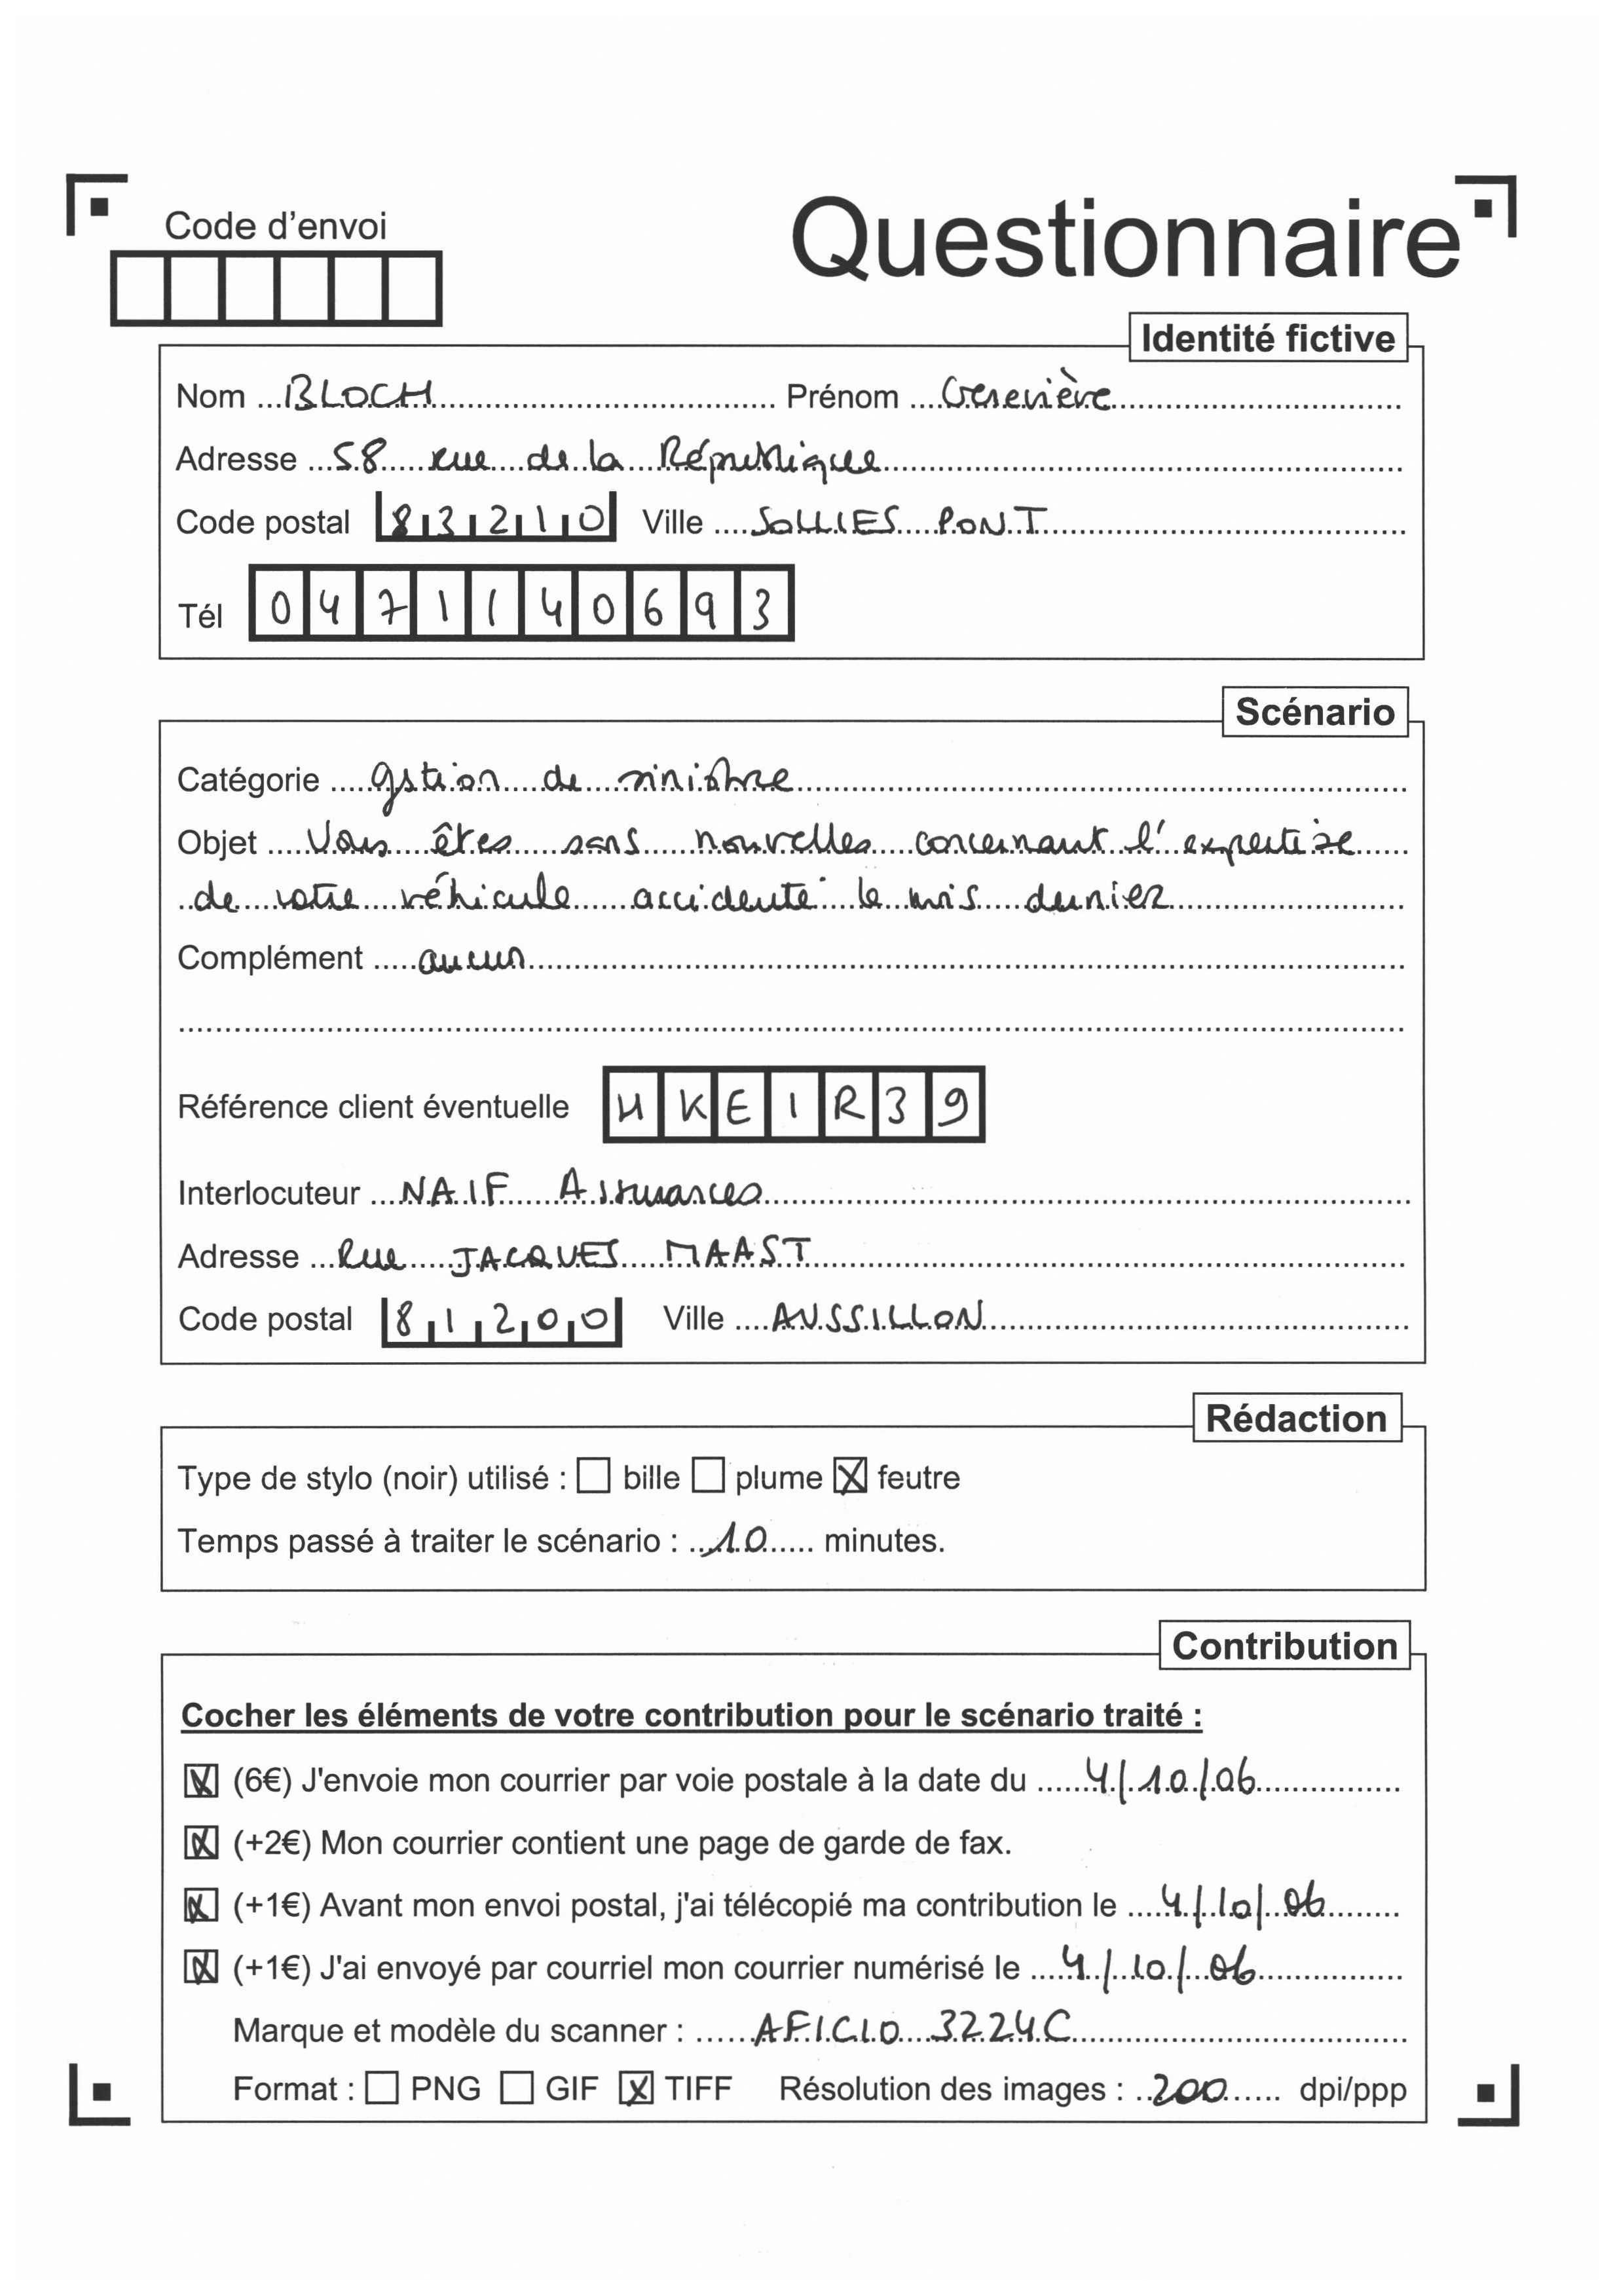 Code d'envoi
Questionnaire
Identité fictive
Nom BLOCH Prénom Geneviève
Adresse 58 rue de la République
Code postal 83210 Ville SOLLIES PONT
Tél 0471140693
Scénario
Catégorie gstion de sinistre
Objet Vous êtes sans nouvelles concernant l'expertise
de votre véhicule accidenté le mois dernier
Complément aucun
Référence client éventuelle HKEIR39
Interlocuteur NAIF Assurances
Adresse Rue JACQUES MAAST
Code postal 81200 Ville AUSSILLON
Rédaction
Type de stylo (noir) utilisé : bille plume feutre
Temps passé à traiter le scénario : 10 minutes.
Contribution
Cocher les éléments de votre contribution pour le scénario traité :
(6€) J'envoie mon courrier par voie postale à la date du 4/10/06
(+2€) Mon courrier contient une page de garde de fax.
(+1€) Avant mon envoi postal, j'ai télécopié ma contribution le 4/10/06
(+1€) J'ai envoyé par courriel mon courrier numérisé le 4/10/06
Marque et modèle du scanner : AFICIO 3224C
Format : PNG GIF TIFF Résolution des images : 200 dpi/ppp